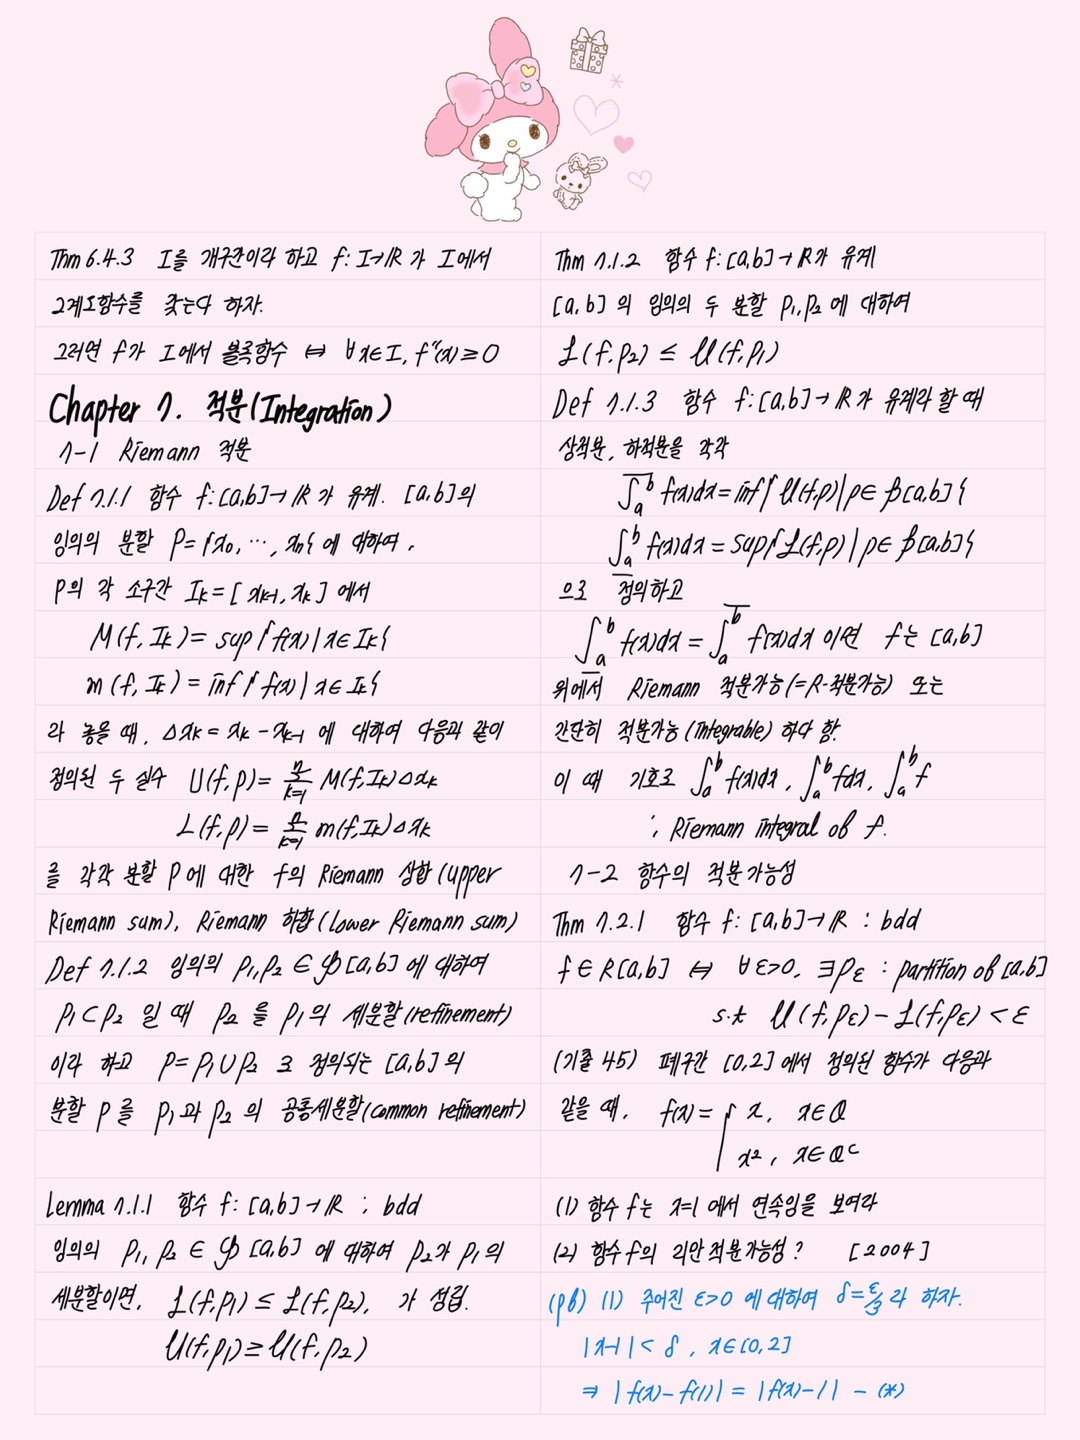 Thm 6.4.3 I를 개구간이라 하고 f: I→ℝ 가 I에서
2계도함수를 갖는다 하자.
그러면 f가 I에서 볼록함수 ⇔ ∀x∈I, f''(x)≥0
Chapter 7. 적분(Integration)
7-1 Riemann 적분
Def 7.1.1 함수 f: [a,b]→ℝ가 유계. [a,b]의
임의의 분할 P={x₀, ⋯, xₙ}에 대하여,
P의 각 소구간 Iₖ=[xₖ₋₁, xₖ]에서
M(f, Iₖ)= sup{f(x)|x∈Iₖ}
m(f, Iₖ)= inf{f(x)|x∈Iₖ}
라 놓을 때, △xₖ= xₖ-xₖ₋₁ 에 대하여 다음과 같이
정의된 두 실수 U(f,p)= ∑ₖ₌₁ⁿ M(f,Iₖ)△xₖ
L(f,p)= ∑ₖ₌₁ⁿ m(f,Iₖ)△xₖ
를 각각 분할 P에 대한 f의 Riemann 상합(upper
Riemann sum), Riemann 하합(Lower Riemann sum)
Def 7.1.2 임의의 p₁,p₂ ∈ ℘[a,b]에 대하여
p₁⊂p₂ 일 때 p₂를 p₁의 세분할(refinement)
이라 하고 p=p₁∪p₂ 로 정의되는 [a,b]의
분할 p를 p₁과 p₂의 공통세분할(common refinement)
Lemma 7.1.1 함수 f: [a,b]→ℝ ; bdd
임의의 p₁, p₂ ∈ ℘[a,b]에 대하여 p₂가 p₁의
세분할이면, L(f,p₁) ≤ L(f,p₂), 가 성립.
U(f,p₁)≥U(f,p₂)
Thm 7.1.2 함수 f: [a,b]→ℝ가 유계
[a,b]의 임의의 두 분할 p₁,p₂에 대하여
L(f,p₂) ≤ U(f,p₁)
Def 7.1.3 함수 f: [a,b]→ℝ가 유계라 할 때
상적분, 하적분을 각각
‾∫ₐᵇ f(x)dx = inf{U(f,p)|p∈℘[a,b]}
_∫ₐᵇ f(x)dx = sup{L(f,p)|p∈℘[a,b]}
으로 정의하고
_∫ₐᵇ f(x)dx = ‾∫ₐᵇ f(x)dx 이면 f는 [a,b]
위에서 Riemann 적분가능(=R-적분가능) 또는
간단히 적분가능(integrable)하다 함.
이 때 기호로 ∫ₐᵇ f(x)dx, ∫ₐᵇ fdx, ∫ₐᵇ f
; Riemann integral of f.
7-2 함수의 적분가능성
Thm 7.2.1 함수 f: [a,b]→ℝ : bdd
f∈R[a,b] ⇔ ∀ε>0, ∃p_ε : partition of [a,b]
s.t U(f,p_ε)-L(f,p_ε)<ε
(기출 45) 폐구간 [0,2]에서 정의된 함수가 다음과
같을 때, f(x)= { x, x∈ℚ
x², x∈ℚᶜ
(1) 함수 f는 x=1에서 연속임을 보여라
(2) 함수 f의 리만적분가능성? [2004]
(pf) (1) 주어진 ε>0에 대하여 δ=ε/3라 하자.
|x-1|<δ, x∈[0,2]
⇒ |f(x)-f(1)| = |f(x)-1| - (*)